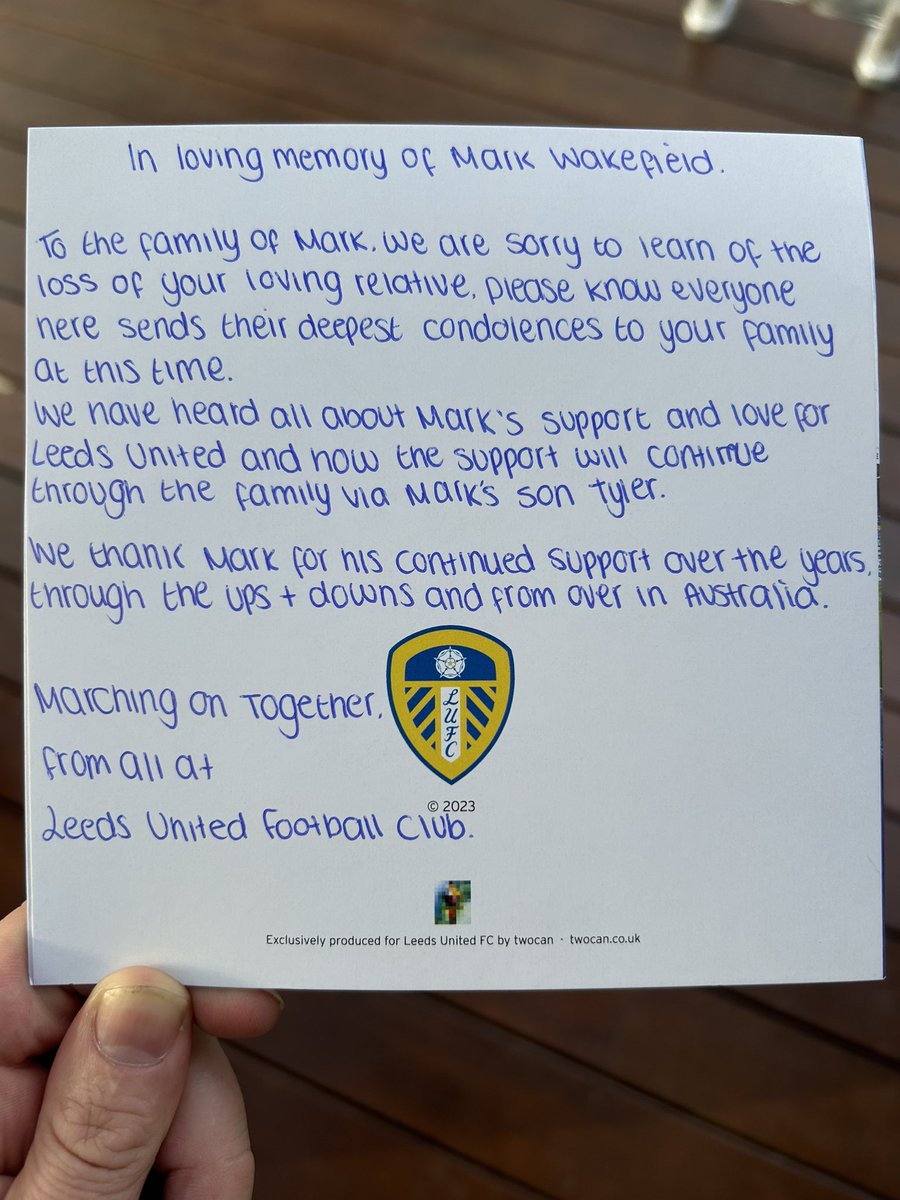 In loving memory of Mark Wakefield.
To the family of Mark. We are sorry to learn of the
loss of your loving relative, please know everyone
here sends their deepest condolences to your family
at this time.
We have heard all about Mark's support and love for
Leeds United and now the support will continue
through the family via Mark's son Tyler.
We thank Mark for his continued support over the years,
through the ups + downs and from over in Australia.
Marching on Together,
from all at
Leeds United Football Club.
LUFC
© 2023
Exclusively produced for Leeds United FC by twocan · twocan.co.uk